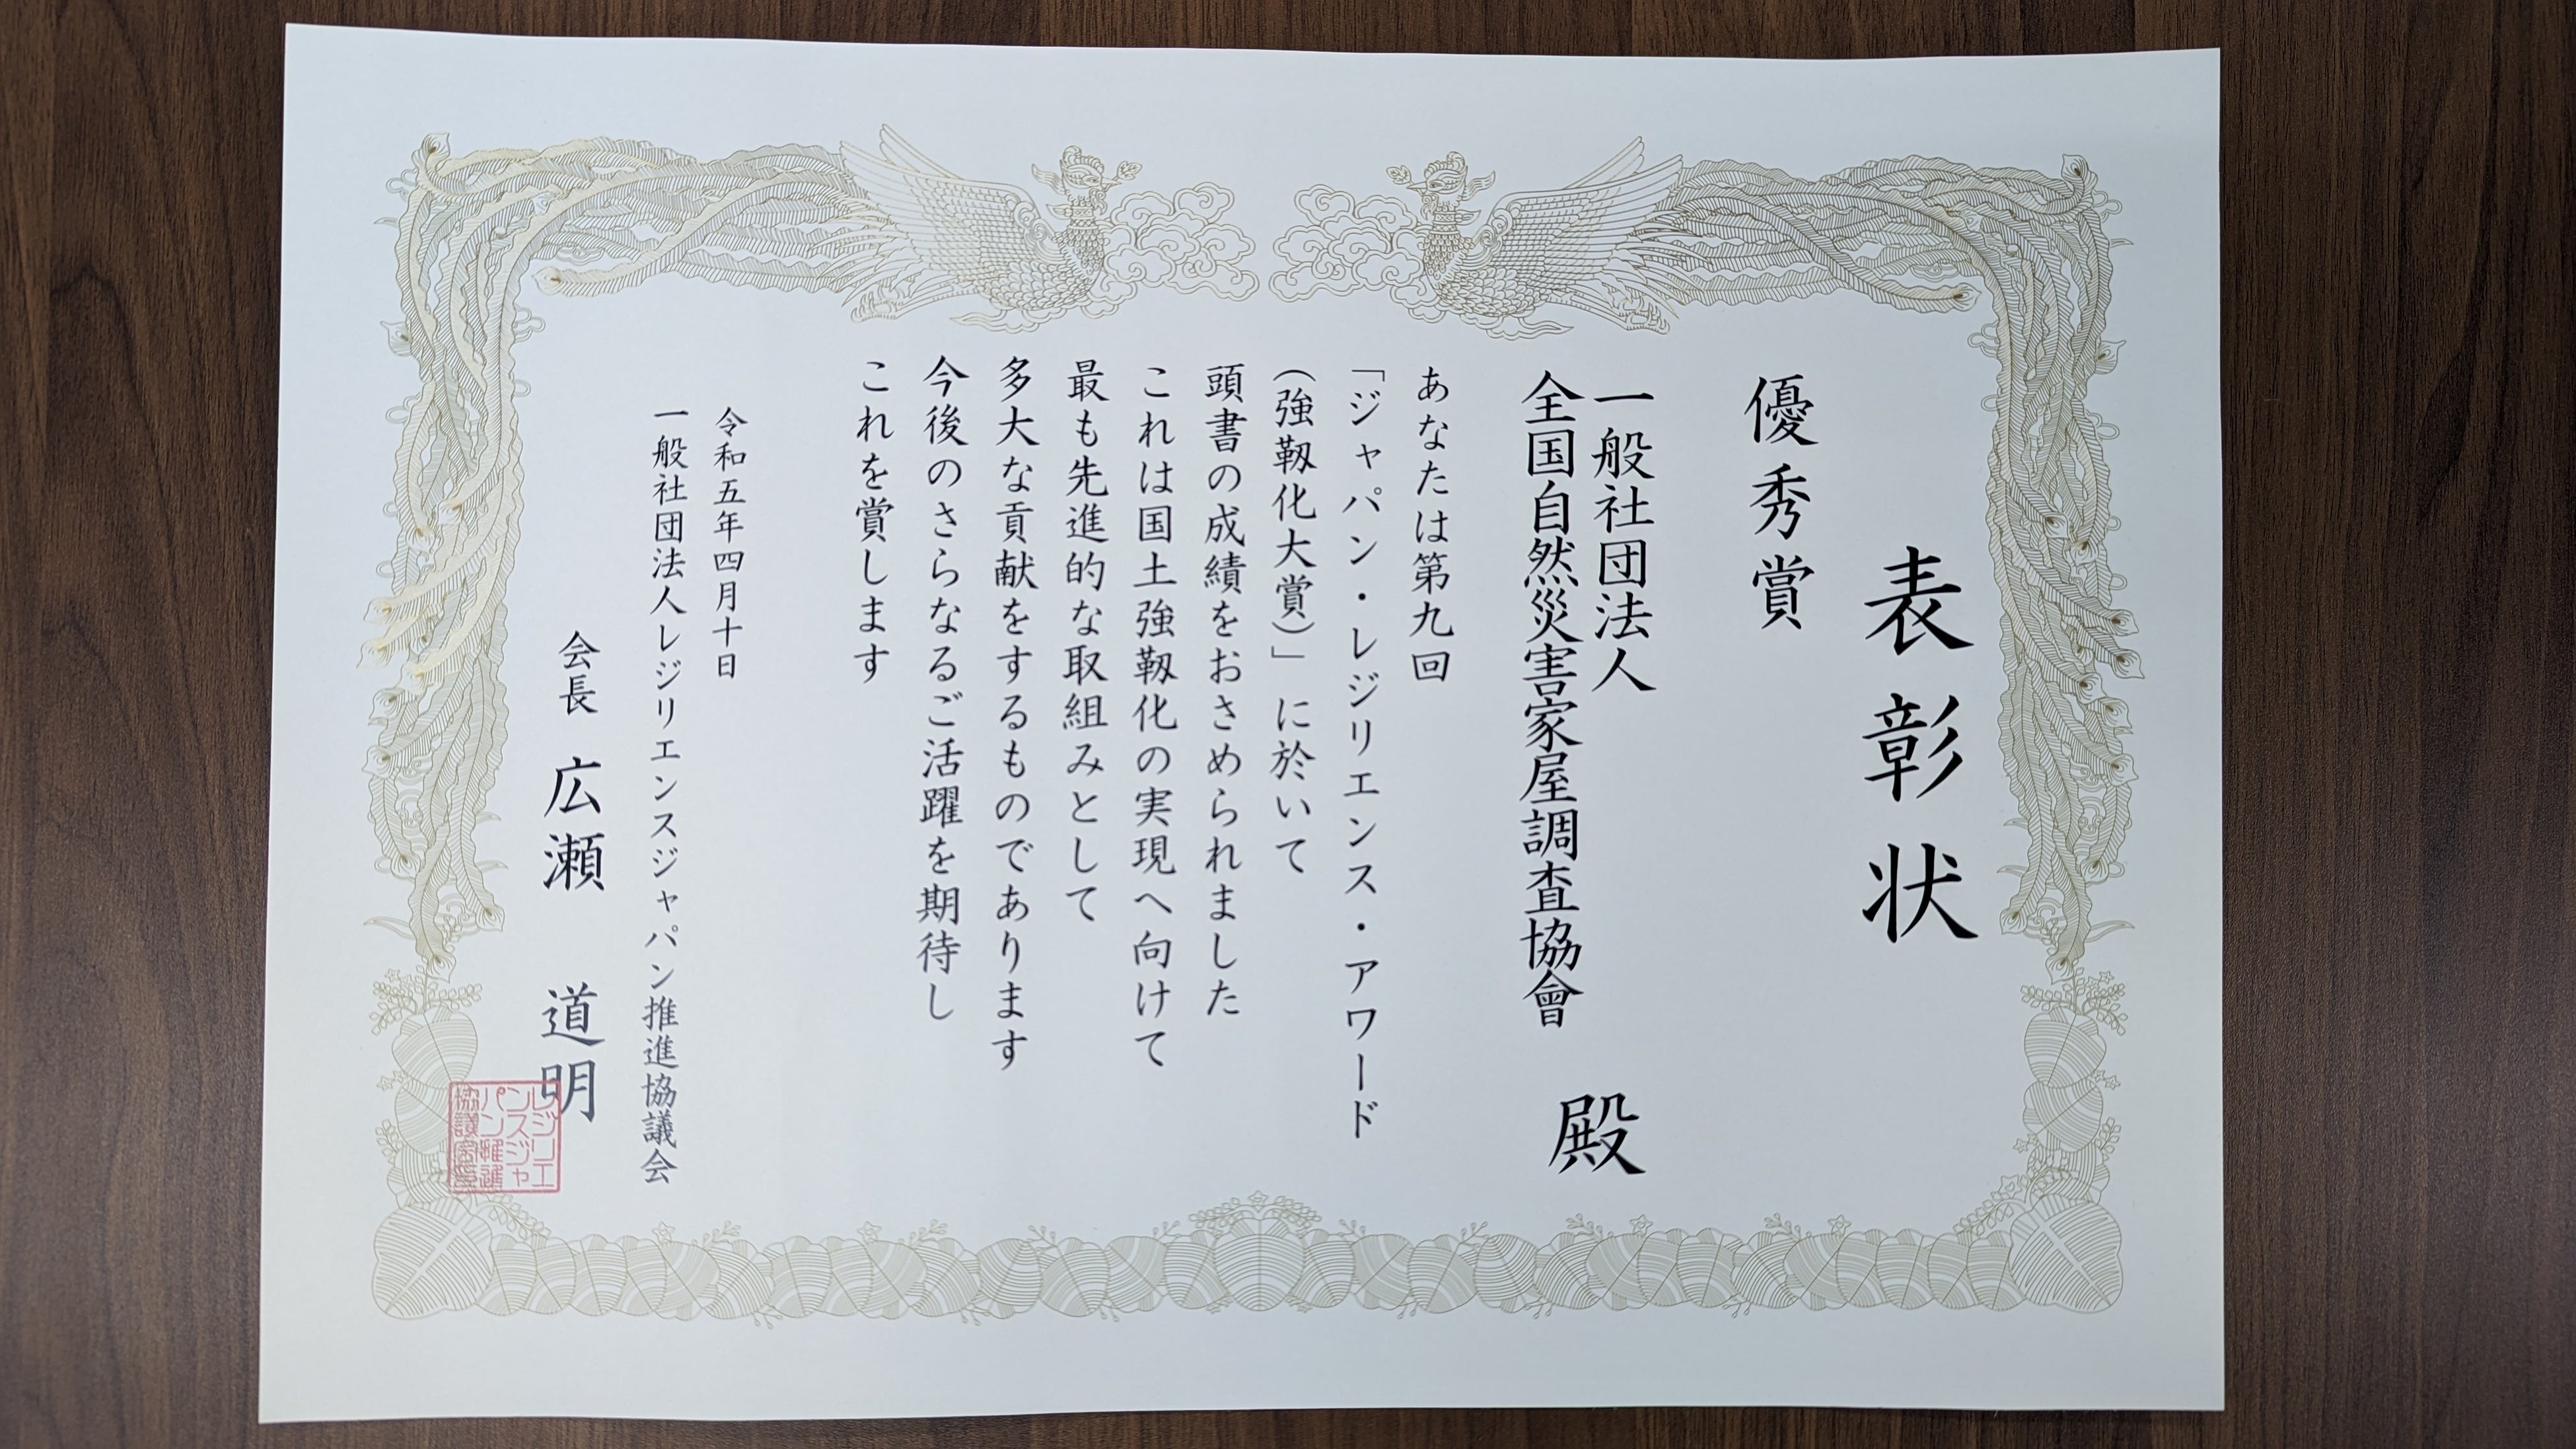 表彰状
優秀賞
一般社団法人
全国自然災害家屋調査協會
殿
あなたは第九回
「ジャパン・レジリエンス・アワード
（強靱化大賞）」に於いて
頭書の成績をおさめられました
これは国土強靱化の実現へ向けて
最も先進的な取組みとして
多大な貢献をするものであります
今後のさらなるご活躍を期待し
これを賞します
令和五年四月十日
一般社団法人レジリエンスジャパン推進協議会
会長 広瀬 道明
レジリエ
ンスジャ
パン推進
協議会